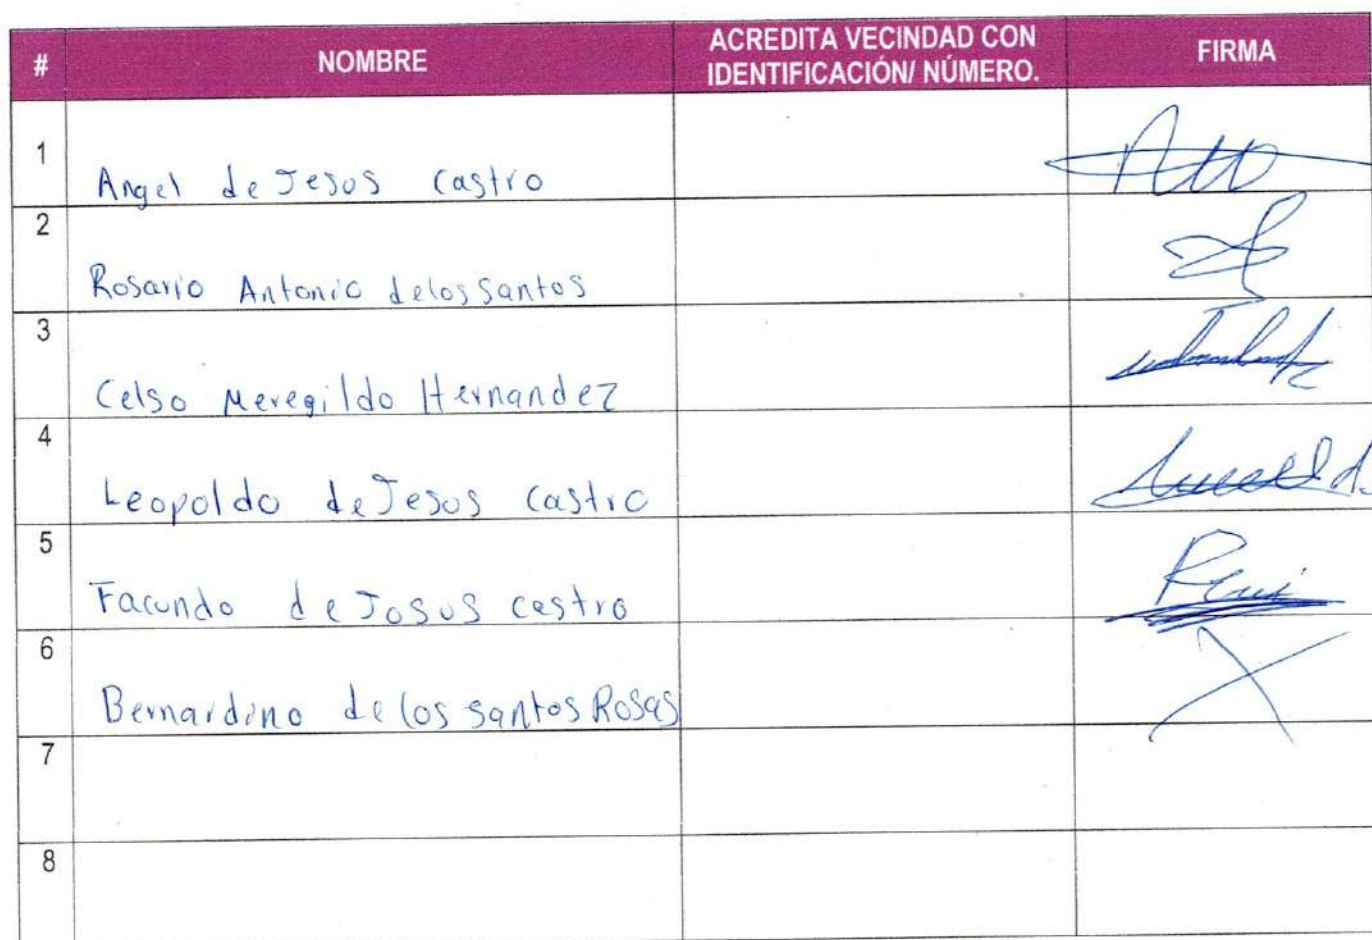 # NOMBRE ACREDITA VECINDAD CON IDENTIFICACIÓN/ NÚMERO. FIRMA
1 Angel de Jesus Castro
2 Rosario Antonio delos Santos
3 Celso Meregildo Hernandez
4 Leopoldo de Jesus Castro
5 Facundo de Josus castro
6 Bernardino de los santos Rosas
7
8